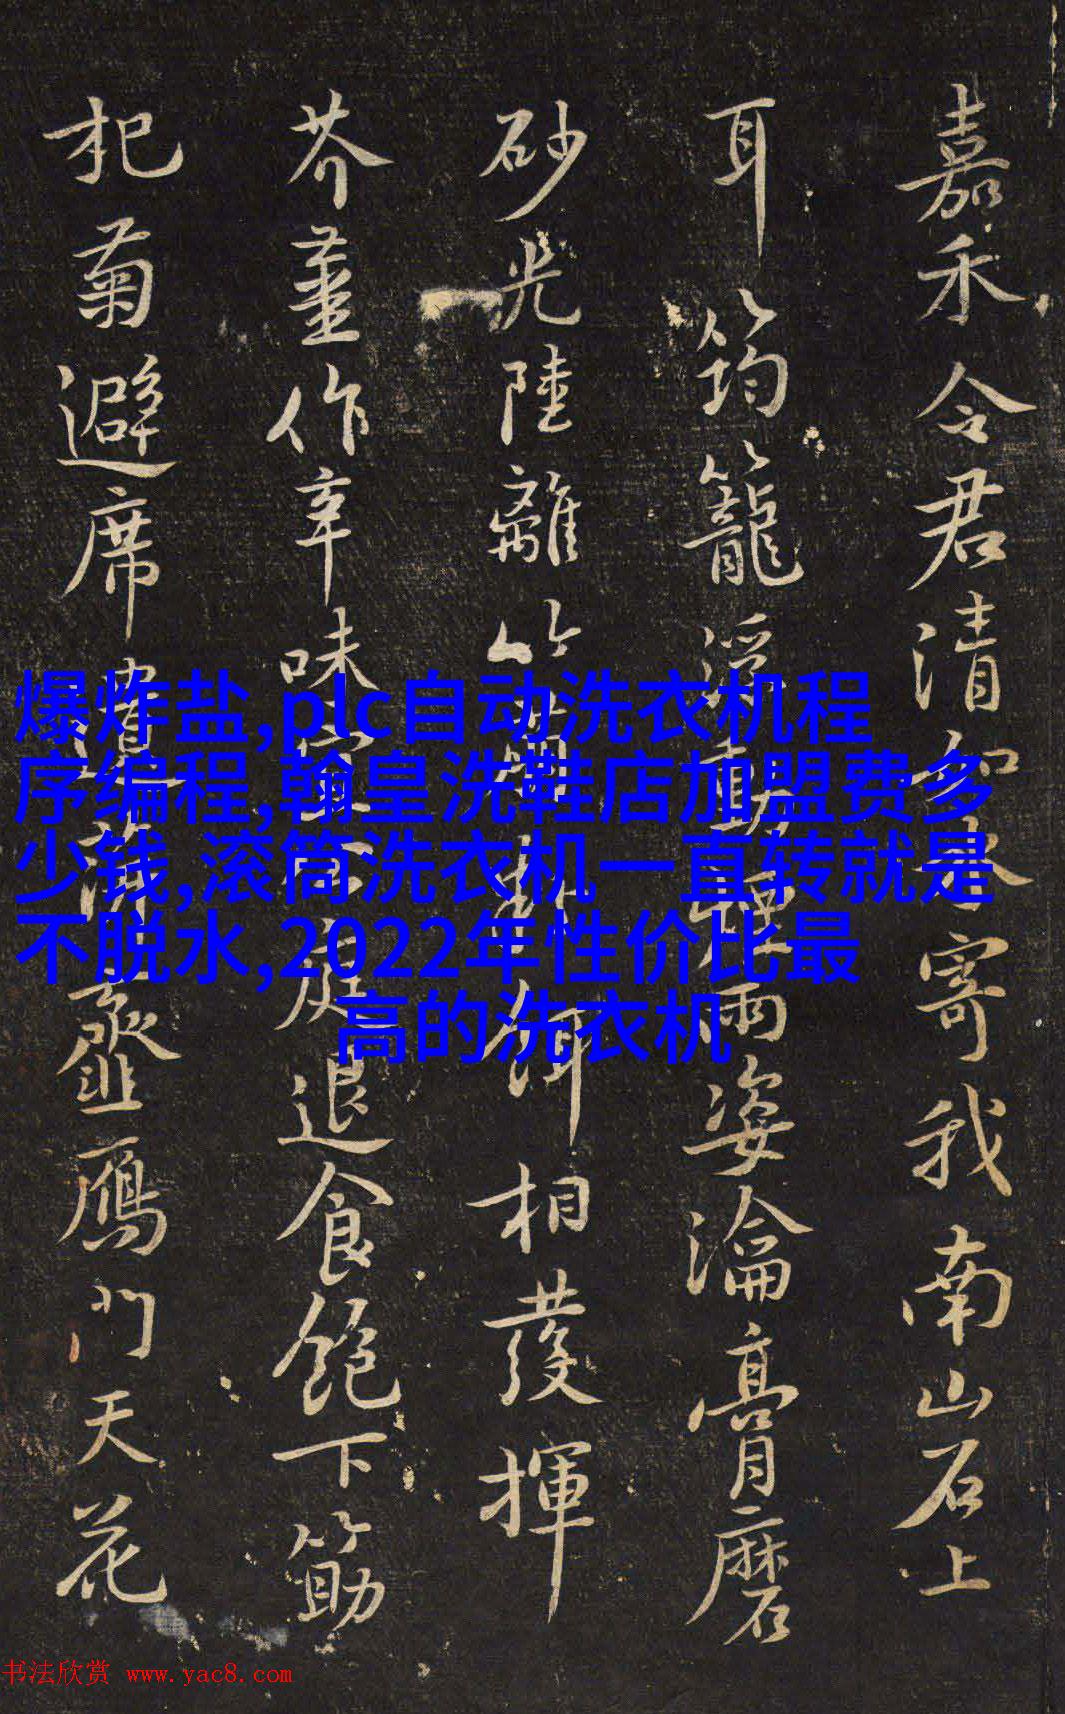 嘉禾令君清如水寄我南山石上
耳筠籠浮動煙雨姿瀹膏磨
砂光陸離竹萌粉餌相發揮
芥薑作辛味宜公庭退食飽下筯
杞菊避席遺萍虀鴈門天花
爆炸盐,plc自动洗衣机程
序编程,翰皇洗鞋店加盟费多
少钱,滚筒洗衣机一直转就是
不脱水,2022年性价比最
高的洗衣机
书法欣赏 www.yac8.com